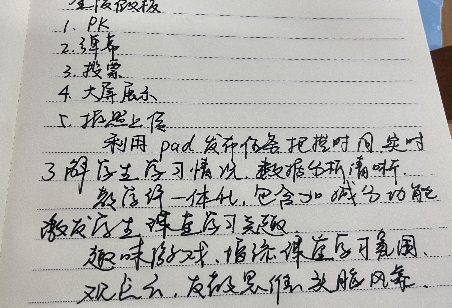 1. PK
2. 弹幕
3. 投票
4. 大屏展示
5. 拍照上传
利用pad发布任务把握时间实时
了解学生学习情况,数据分析清晰
教学评一体化,包含加减分功能
激发学生课堂学习兴趣
趣味游戏,增添课堂学习氛围、
观点云,发散思维,头脑风暴.